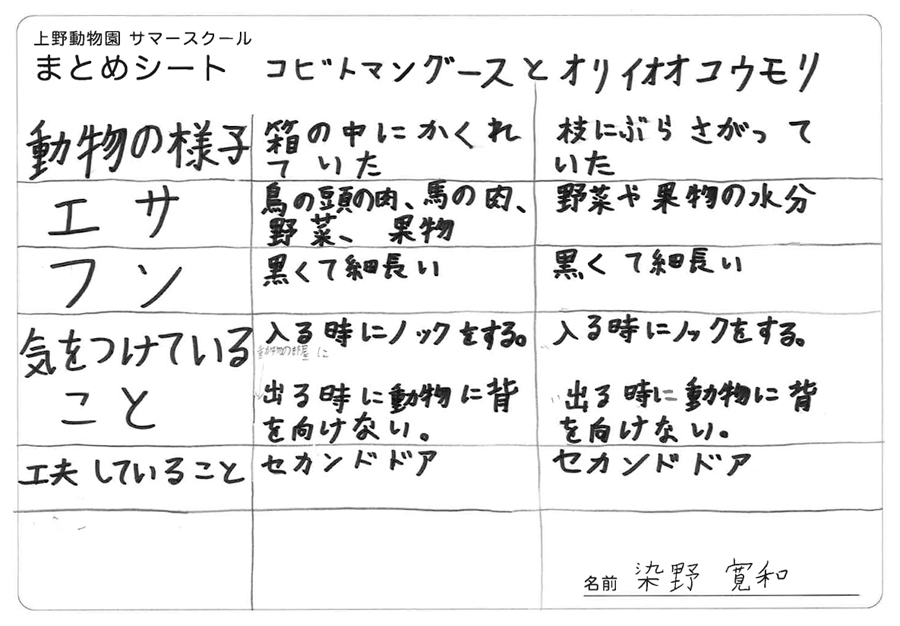 上野動物園 サマースクール
まとめシート コビトマングースとオリイオオコウモリ
動物の様子 箱の中にかくれ 枝にぶらさがって
ていた いた
エサ 鳥の頭の肉、馬の肉、 野菜や果物の水分
野菜、果物
フン 黒くて細長い 黒くて細長い
気をつけている 入る時にノックをする。 入る時にノックをする。
動物の部屋に
こと 出る時に動物に背 出る時に動物に背
を向けない。 を向けない。
工夫していること セカンドドア セカンドドア
名前 染野 寛和